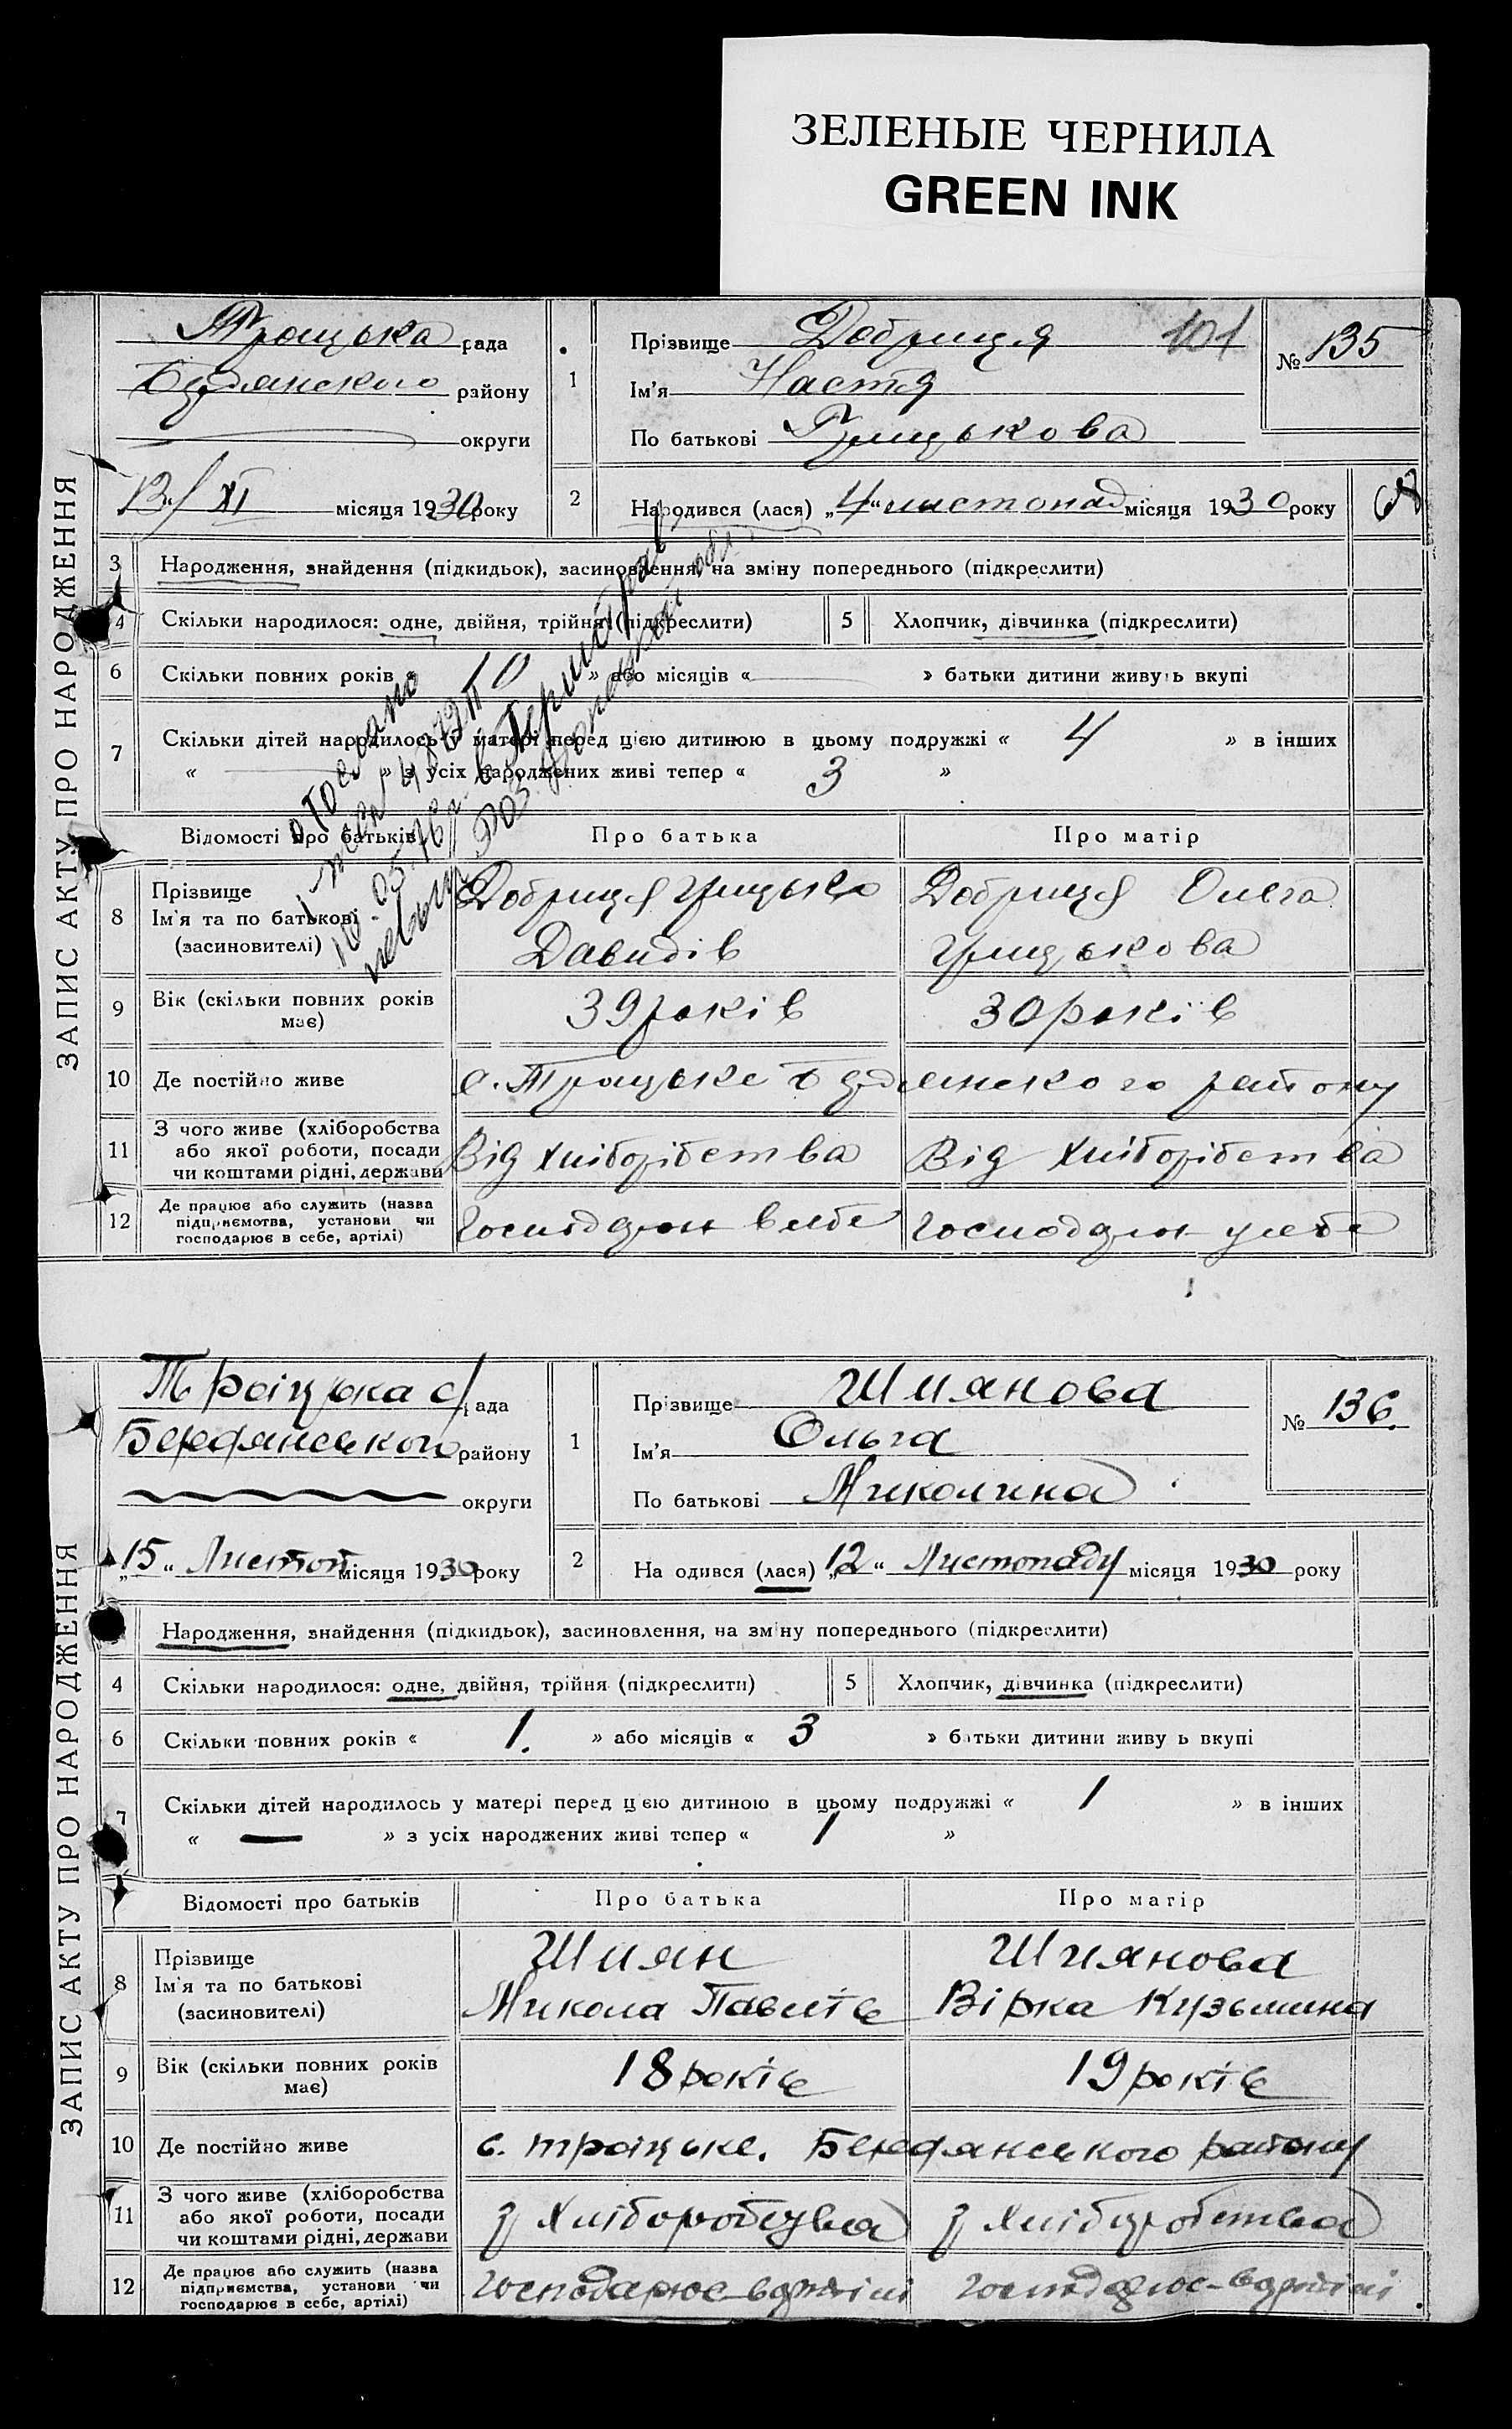 ЗЕЛЕНЫЕ ЧЕРНИЛА
GREEN INK
ЗАПИС АКТУ ПРО НАРОДЖЕННЯ
Троцька рада
району
округи
13/XI місяця 1930 року
1 Прізвище Добриця 101
Ім'я Настя
По батькові Грицькова
№ 135
2 Народився (лася) „4“ листопад місяця 1930 року
68
3 Народження, знайдення (підкидьок), засиновлення, на зміну попереднього (підкреслити)
4 Скільки народилося: одне, двійня, трійня (підкреслити) 5 Хлопчик, дівчинка (підкреслити)
6 Скільки повних років « » або місяців « » батьки дитини живуть вкупі
7 Скільки дітей народилось у матері перед цією дитиною в цьому подружжі « 4 » в інших
« » з усіх народжених живі тепер « 3 »
Відомості про батьків Про батька Про матір
8 Прізвище
Ім'я та по батькові
(засиновителі)
Добриця Грицько Добриця Ольга
Давидів Грицькова
9 Вік (скільки повних років має) 39 років 30 років
10 Де постійно живе с. Троцьке району
11 З чого живе (хліборобства
або якої роботи, посади
чи коштами рідні, держави
Від хліборібства Від хліборібства
12 Де працює або служить (назва
підприємства, установи чи
господарює в себе, артілі)
ЗАПИС АКТУ ПРО НАРОДЖЕННЯ
Троїцька с/рада
Бердянського району
округи
„15“ Листоп місяця 1930 року
1 Прізвище Шиянова
Ім'я Ольга
По батькові Миколина
№ 136.
2 На одився (лася) „12“ Листопаду місяця 1930 року
Народження, знайдення (підкидьок), засиновлення, на зміну попереднього (підкреслити)
4 Скільки народилося: одне, двійня, трійня (підкреслити) 5 Хлопчик, дівчинка (підкреслити)
6 Скільки повних років « 1. » або місяців « 3 » батьки дитини живу ь вкупі
7 Скільки дітей народилось у матері перед цією дитиною в цьому подружжі « 1 » в інших
« — » з усіх народжених живі тепер « 1 »
Відомості про батьків Про батька Про матір
8 Прізвище
Ім'я та по батькові
(засиновителі)
Шиян Шиянова
Микола Павлів Вірка Кузьмина
9 Вік (скільки повних років має) 18 років 19 років
10 Де постійно живе с. Троїцьке. Бердянського району
11 З чого живе (хліборобства
або якої роботи, посади
чи коштами рідні, держави
з хліборобства
12 Де працює або служить (назва
підприємства, установи чи
господарює в себе, артілі)
Господарює в артілі Господарює в артілі